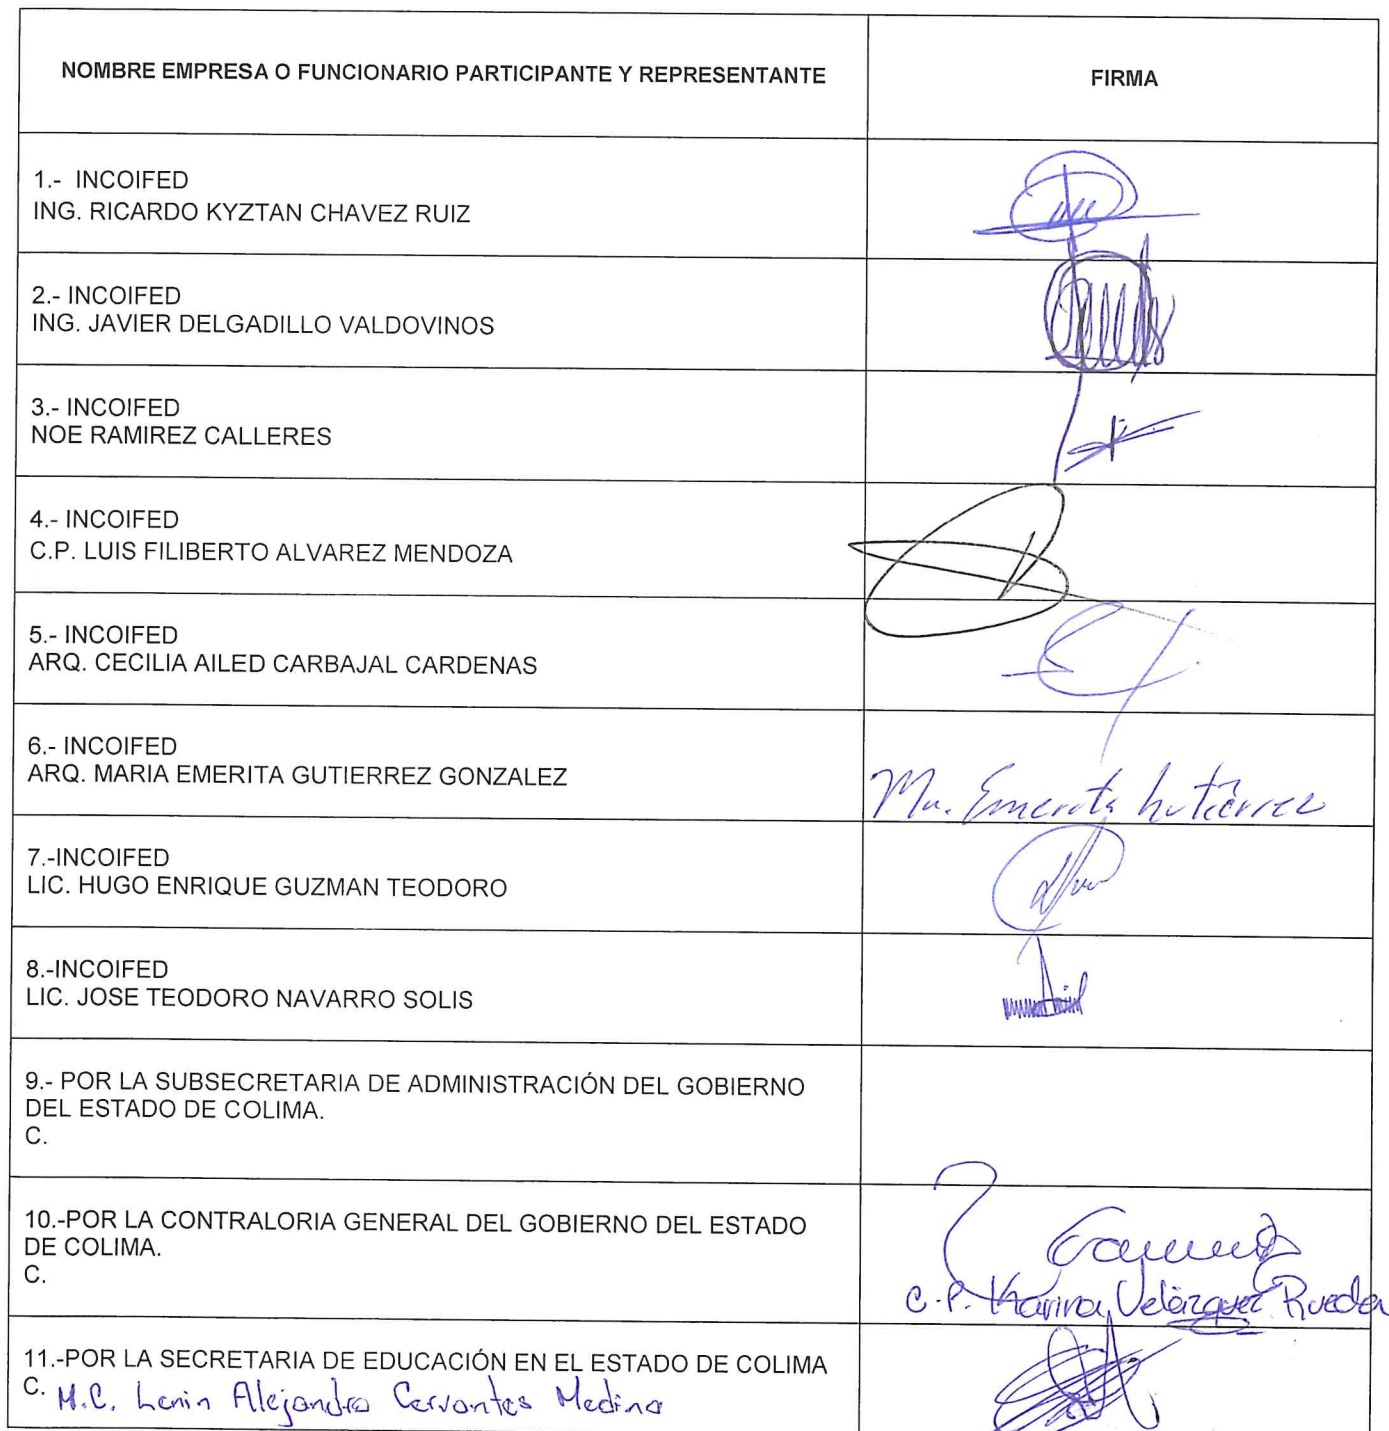 NOMBRE EMPRESA O FUNCIONARIO PARTICIPANTE Y REPRESENTANTE
FIRMA
1.- INCOIFED
ING. RICARDO KYZTAN CHAVEZ RUIZ
2.- INCOIFED
ING. JAVIER DELGADILLO VALDOVINOS
3.- INCOIFED
NOE RAMIREZ CALLERES
4.- INCOIFED
C.P. LUIS FILIBERTO ALVAREZ MENDOZA
5.- INCOIFED
ARQ. CECILIA AILED CARBAJAL CARDENAS
6.- INCOIFED
ARQ. MARIA EMERITA GUTIERREZ GONZALEZ
Ma. Emerita Gutiérrez
7.-INCOIFED
LIC. HUGO ENRIQUE GUZMAN TEODORO
8.-INCOIFED
LIC. JOSE TEODORO NAVARRO SOLIS
9.- POR LA SUBSECRETARIA DE ADMINISTRACIÓN DEL GOBIERNO
DEL ESTADO DE COLIMA.
C.
10.-POR LA CONTRALORIA GENERAL DEL GOBIERNO DEL ESTADO
DE COLIMA.
C.
C.P. Karina Velázquez Rueda
11.-POR LA SECRETARIA DE EDUCACIÓN EN EL ESTADO DE COLIMA
C. M.C. Lenin Alejandro Cervantes Medina